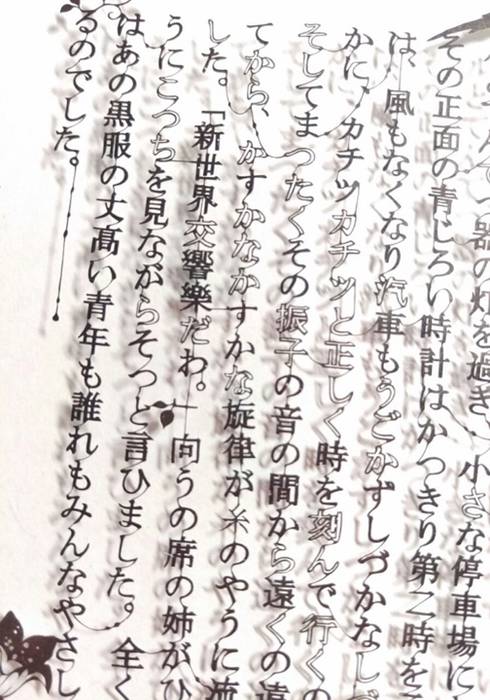 んてつ器の灯を過ぎ、小さな停車場に
その正面の青じろい時計はかつきり第二時を
は、風もなくなり汽車もうごかずしづかなし
かに、カチツカチツと正しく時を刻んで行くの
そしてまつたくその振子の音の間から遠くの遠
てから、かすかなかすかな旋律が糸のやうに流
した。「新世界交響樂だわ。」向うの席の姉がひ
うにこつちを見ながらそつと言ひました。全く
はあの黒服の丈高い青年も誰れもみんなやさし
るのでした。